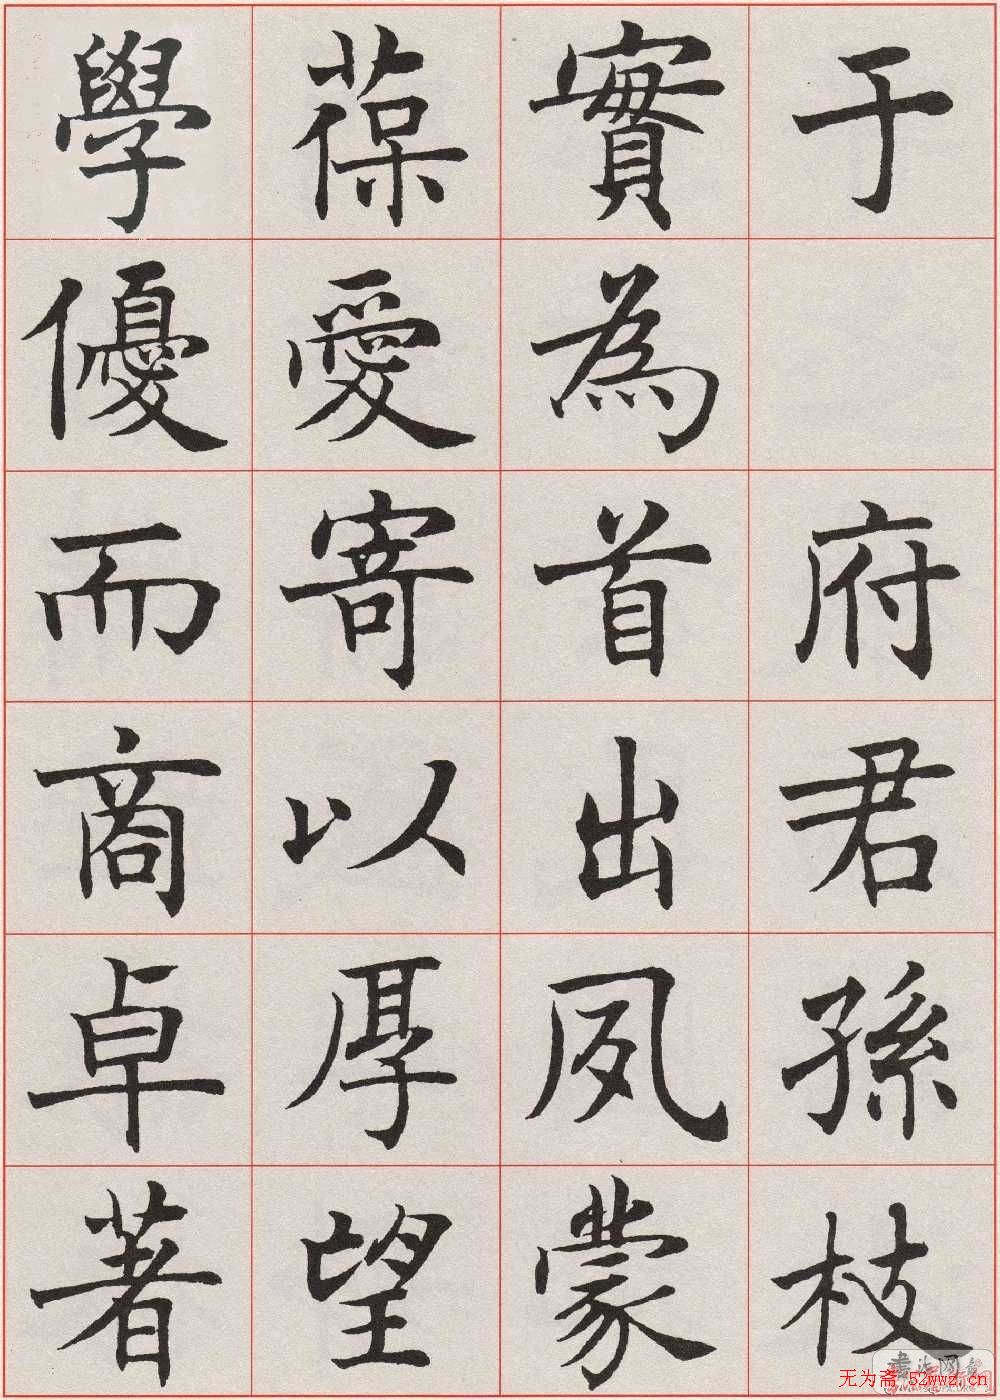 于 府君孫枝
實為首出夙蒙
葆愛寄以厚望
學優而商卓著
无为斋 52wwz.cn